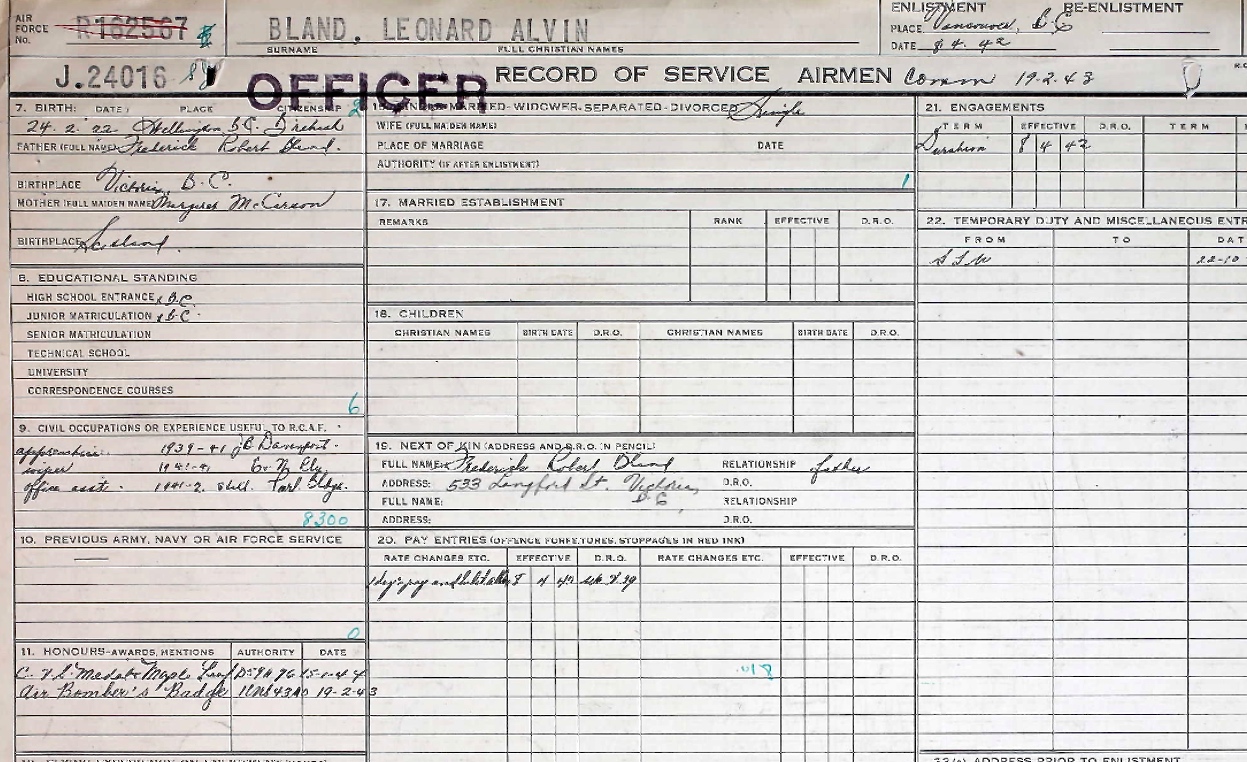 AIR FORCE No. R162567
BLAND, LEONARD ALVIN
SURNAME FULL CHRISTIAN NAMES
ENLISTMENT RE-ENLISTMENT
PLACE Vancouver, B.C
DATE 8 4. 42
J.24016
OFFICER
RECORD OF SERVICE AIRMEN Comm 19.2.43
7. BIRTH: DATE: PLACE CITIZENSHIP
24. 2. 22 Wellington B.C. British
FATHER (FULL NAME) Frederick Robert Bland.
BIRTHPLACE Victoria, B.C.
MOTHER (FULL MAIDEN NAME) Margaret
BIRTHPLACE
8. EDUCATIONAL STANDING
HIGH SCHOOL ENTRANCE x B.C.
JUNIOR MATRICULATION x B.C.
SENIOR MATRICULATION
TECHNICAL SCHOOL
UNIVERSITY
CORRESPONDENCE COURSES
6
9. CIVIL OCCUPATIONS OR EXPERIENCE USEFUL TO R.C.A.F.
apprentice 1939-41 Davenport.
wiper 1941-41
office asst. 1941-2. Parl. Bldgs.
8300
10. PREVIOUS ARMY, NAVY OR AIR FORCE SERVICE
0
11. HONOURS-AWARDS, MENTIONS AUTHORITY DATE
Maple Leaf
Air Bomber's Badge 19-2-43
MARRIED-WIDOWER-SEPARATED-DIVORCED Single
WIFE (FULL MAIDEN NAME)
PLACE OF MARRIAGE DATE
AUTHORITY (IF AFTER ENLISTMENT)
1
17. MARRIED ESTABLISHMENT
REMARKS RANK EFFECTIVE D.R.O.
18. CHILDREN
CHRISTIAN NAMES BIRTH DATE D.R.O. CHRISTIAN NAMES BIRTH DATE D.R.O.
19. NEXT OF KIN (ADDRESS AND D.R.O. IN PENCIL)
FULL NAME: Frederick Robert Bland RELATIONSHIP father
ADDRESS: 533 Langford St. Victoria, B C D.R.O.
FULL NAME: RELATIONSHIP
ADDRESS: D.R.O.
20. PAY ENTRIES (OFFENCE FORFEITURES, STOPPAGES IN RED INK)
RATE CHANGES ETC. EFFECTIVE D.R.O. RATE CHANGES ETC. EFFECTIVE D.R.O.
8 4 42
21. ENGAGEMENTS
TERM EFFECTIVE D.R.O. TERM
Duration 8 4 42
22. TEMPORARY DUTY AND MISCELLANEOUS ENTR
FROM TO DAT
22-10
ADDRESS PRIOR TO ENLISTMENT